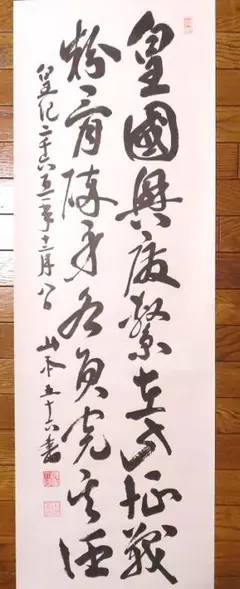 皇國興廢繫在此征戰
粉骨碎身各員完其任
皇紀二千六百一年十二月八日 山本五十六書